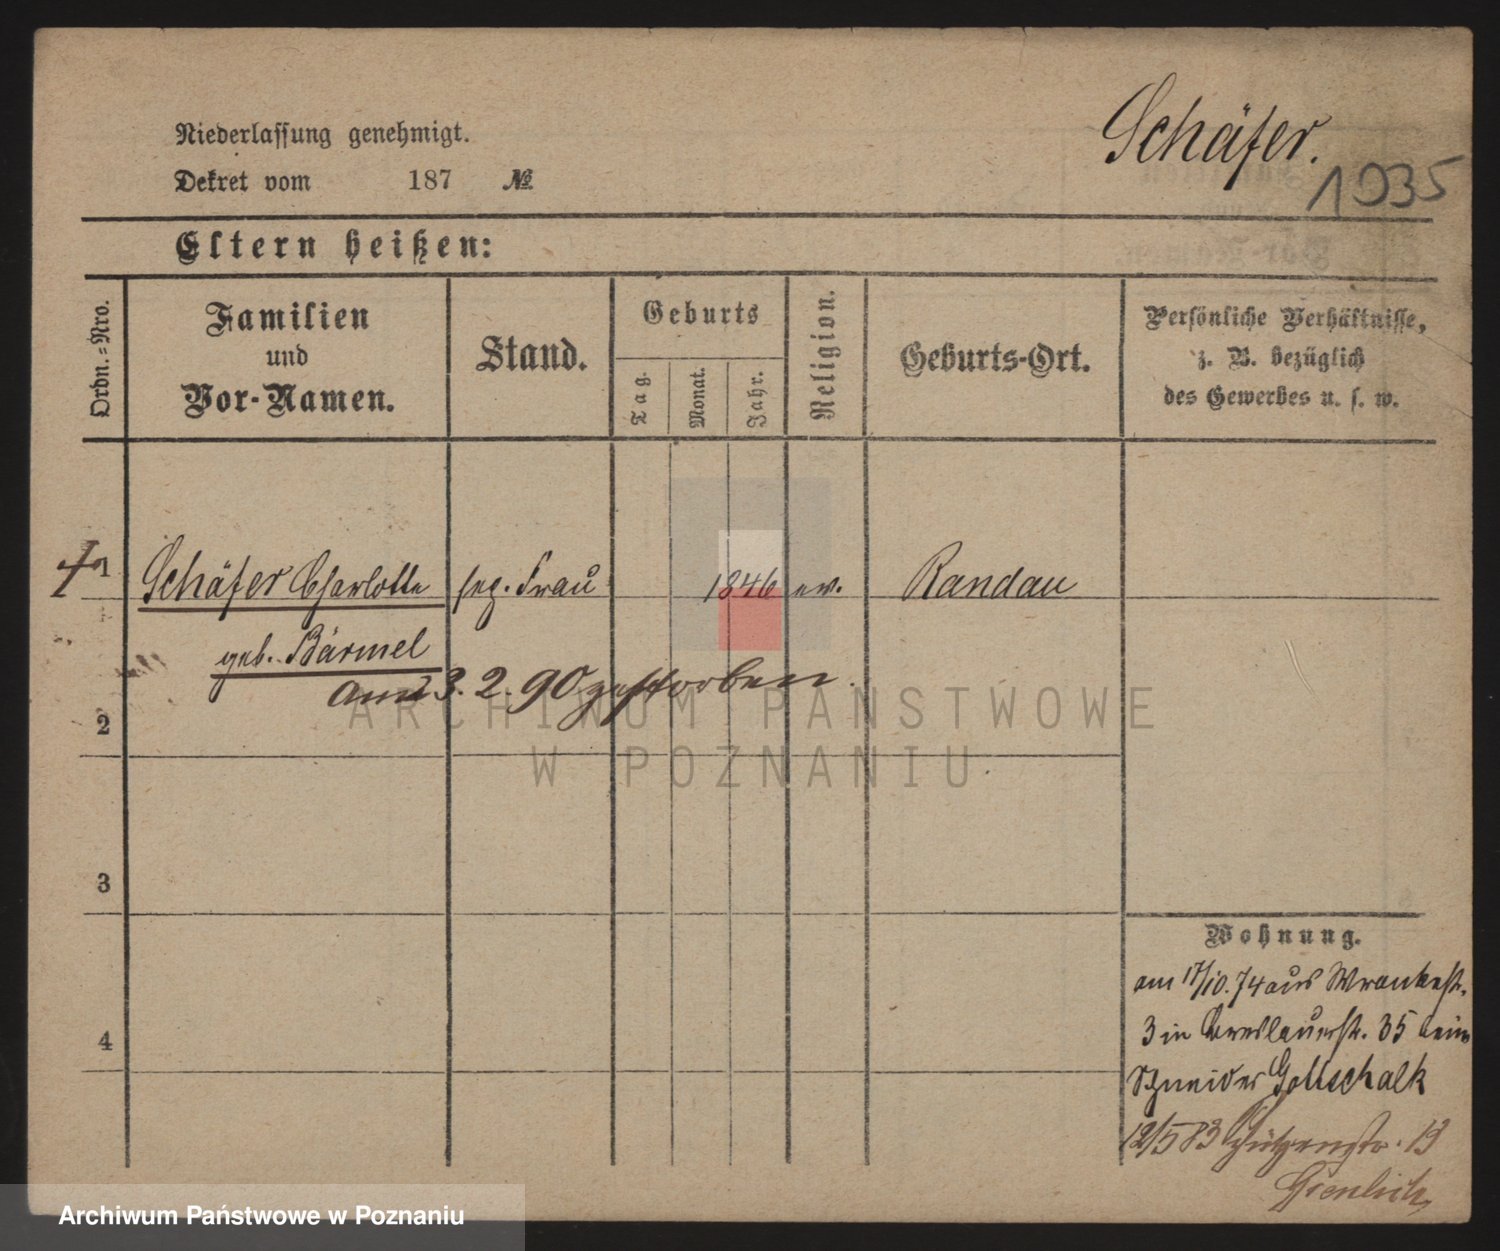 Schäfer.
1935
Niederlassung genehmigt.
Dekret vom 187 №
Eltern heißen:
Ordn.=Nro.
Familien
und
Vor-Namen.
Stand.
Geburts
Tag.
Monat.
Jahr.
Religion.
Geburts-Ort.
Persönliche Verhältnisse,
z. B. bezüglich
des Gewerbes u. s. w.
1 Schäfer Charlotte sep. Frau 1846 ev. Randau
geb. Bärmel
am 3. 2. 90 gestorben.
2
3
4
Wohnung.
am 17/10. 74 aus Wronkerstr.
3 in Breslauerstr. 35 beim
Schneider Gottschalk
12/5 83 Schützenstr. 19
ARCHIWUM PAŃSTWOWE
W POZNANIU
Archiwum Państwowe w Poznaniu